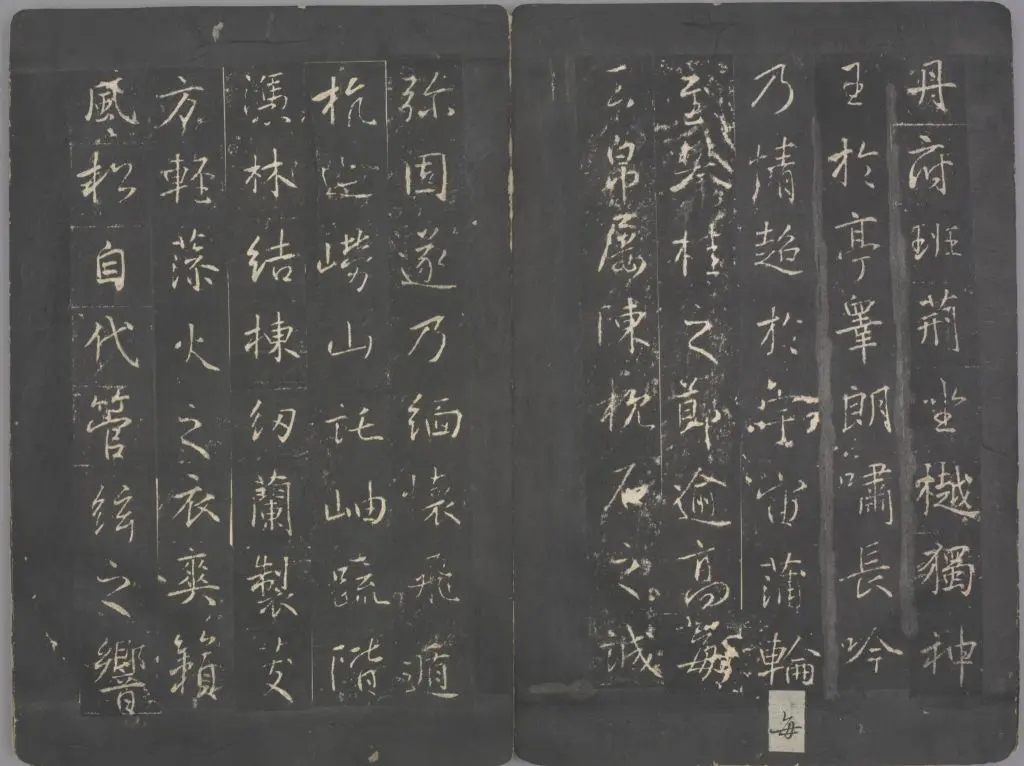 丹府班荊坐樾獨神
王於亭皋朗嘯長吟
乃情超於宇宙蒲輪
每
至攀桂之節逾高
帛屢陳枕石之誠
彌固遂乃緬懷飛遁
抗迹嶗山託岫疏階
憑林結棟紉蘭製芰
方輕藻火之衣爽籟
風松自代管絃之響